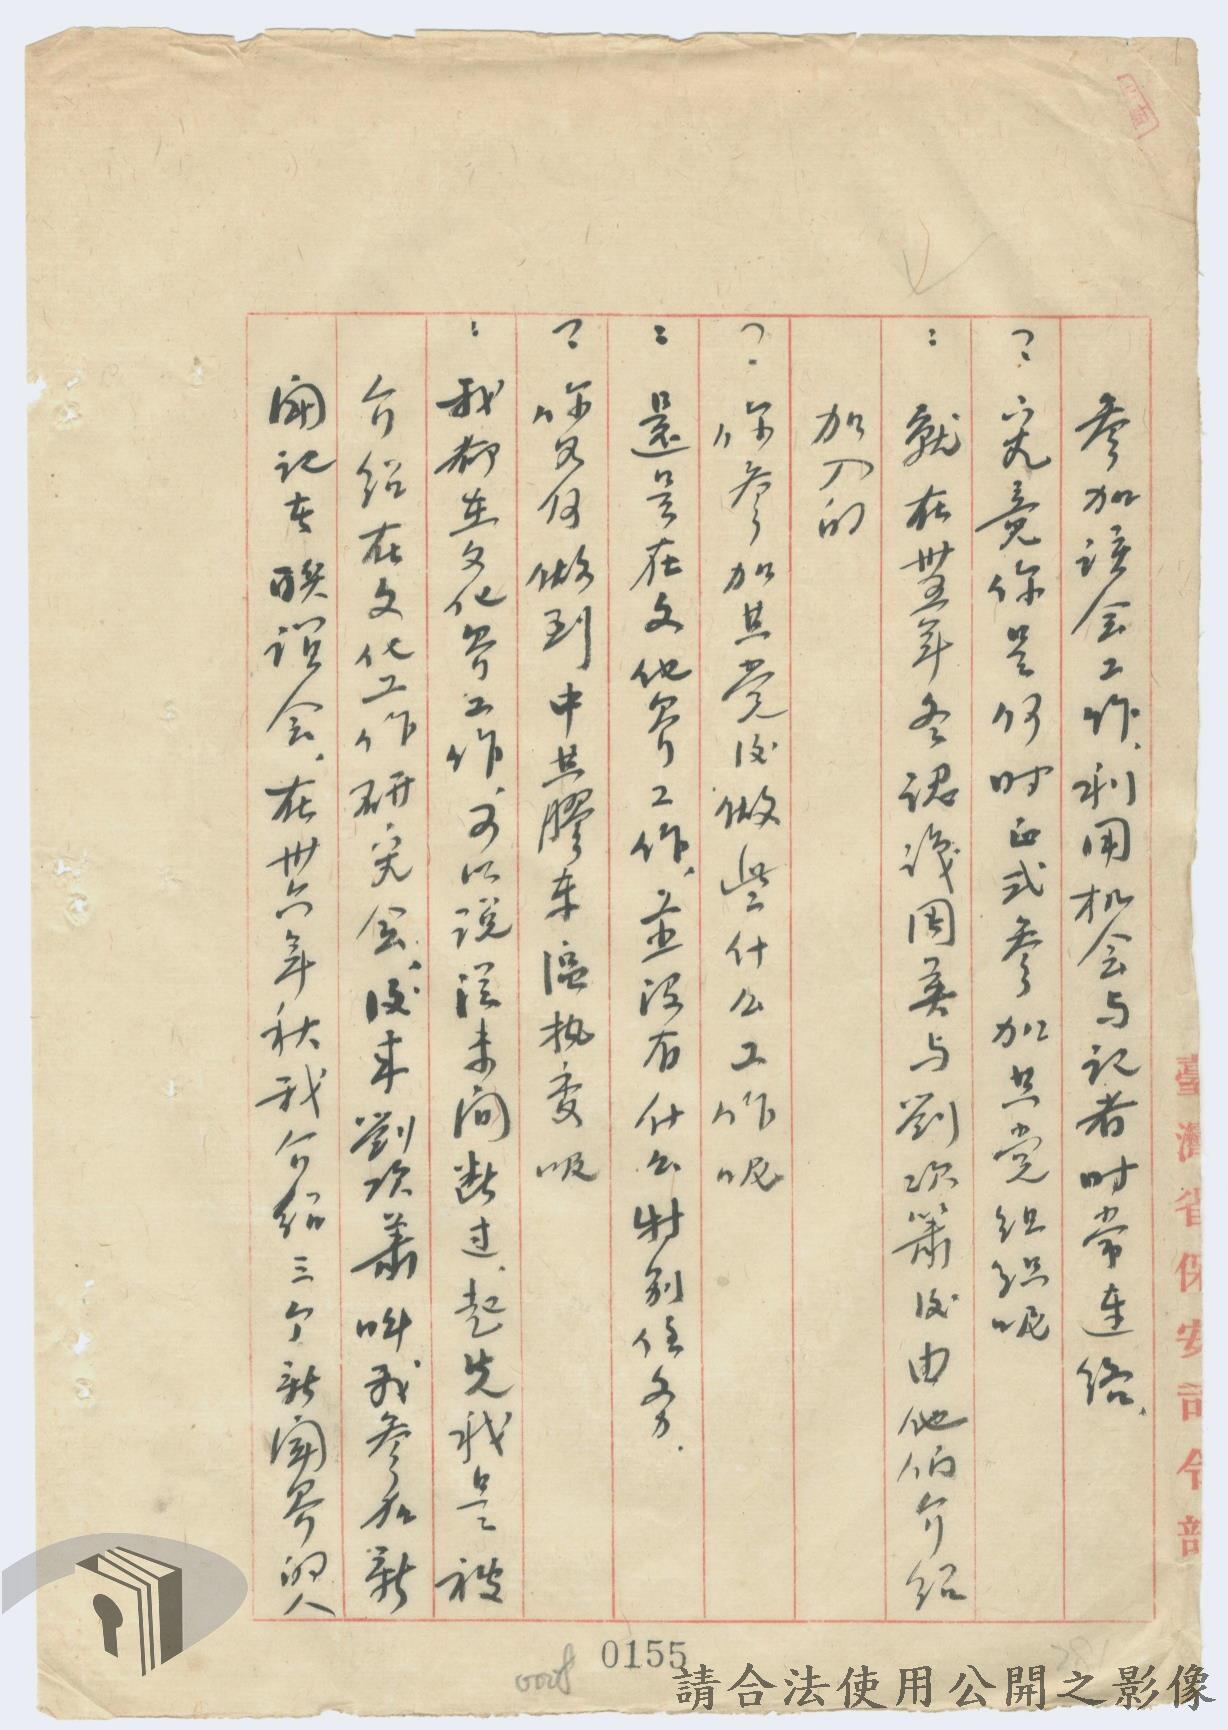 參加該会工作、利用机会与記者时常連络、
?: 究竟你是何时正式參加共党组织呢
: 就在卅五年冬認識周英与劉次簫後由他们介绍
加入的
?: 你參加共党後做些什么工作呢
: 還是在文化界工作、並没有什么特别任务.
?: 你為何做到中共膠东區执委呢
: 我都在文化界工作、可以説從未间断过、起先我是被
介绍在文化工作研究会、後来劉次蕭叫我參加新
闻记者联谊会、在卅六年秋我介绍三个新闻界的人
臺灣省保安司令部
0155
0028
請合法使用公開之影像